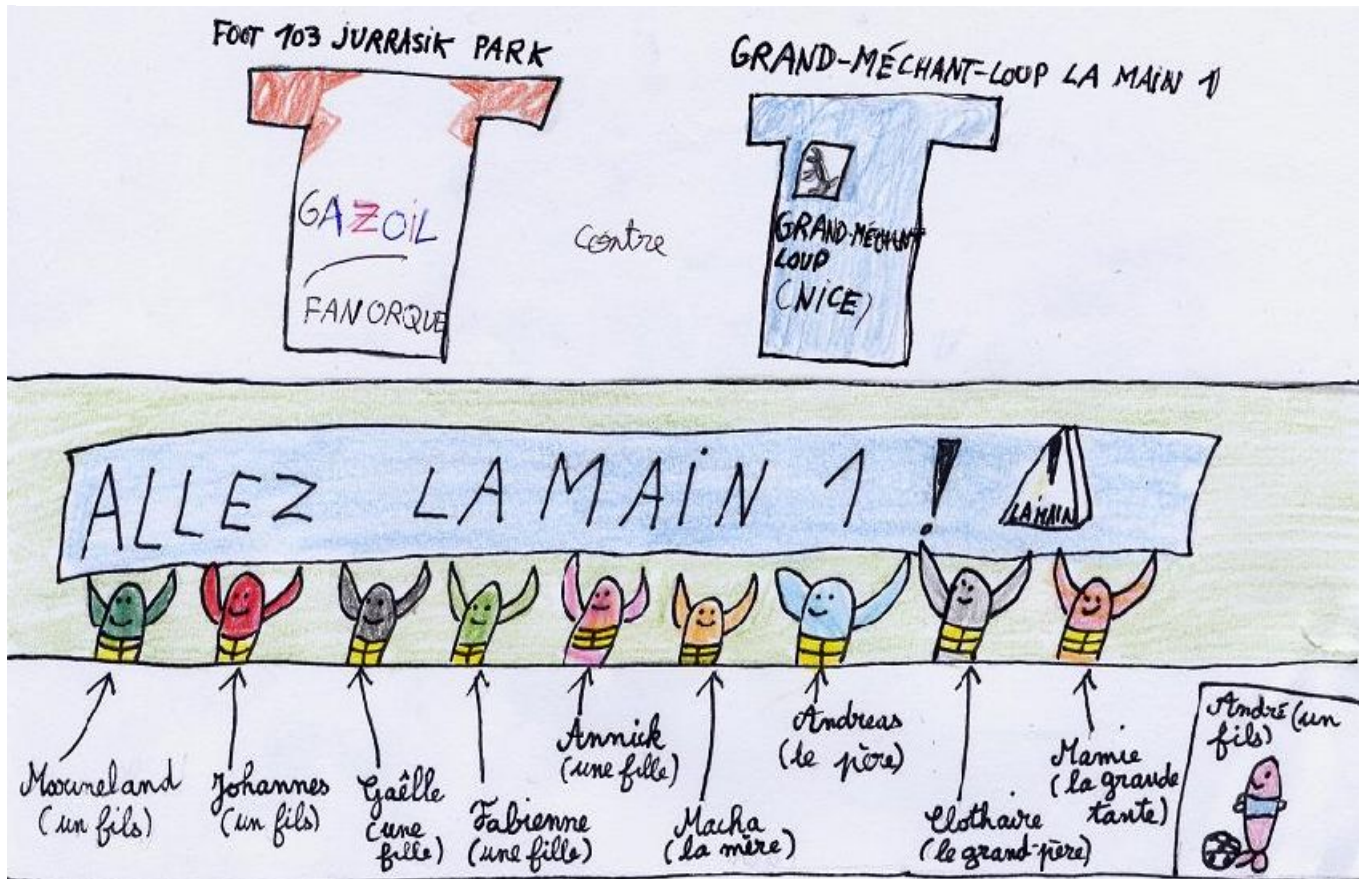 FOOT 103 JURRASIK PARK
GRAND-MÉCHANT-LOUP LA MAIN 1
GAZOIL
FANORQUE
contre
GRAND-MÉCHANT
LOUP
(NICE)
ALLEZ LA MAIN 1 !
LA MAIN
Marineland
(un fils)
Johannes
(un fils)
Gaêlle
(une
fille)
Fabienne
(une fille)
Annick
(une fille)
Macha
(la mère)
Andreas
(le père)
Clothaire
(le grand-père)
Mamie
(la grande
tante)
André (un
fils)